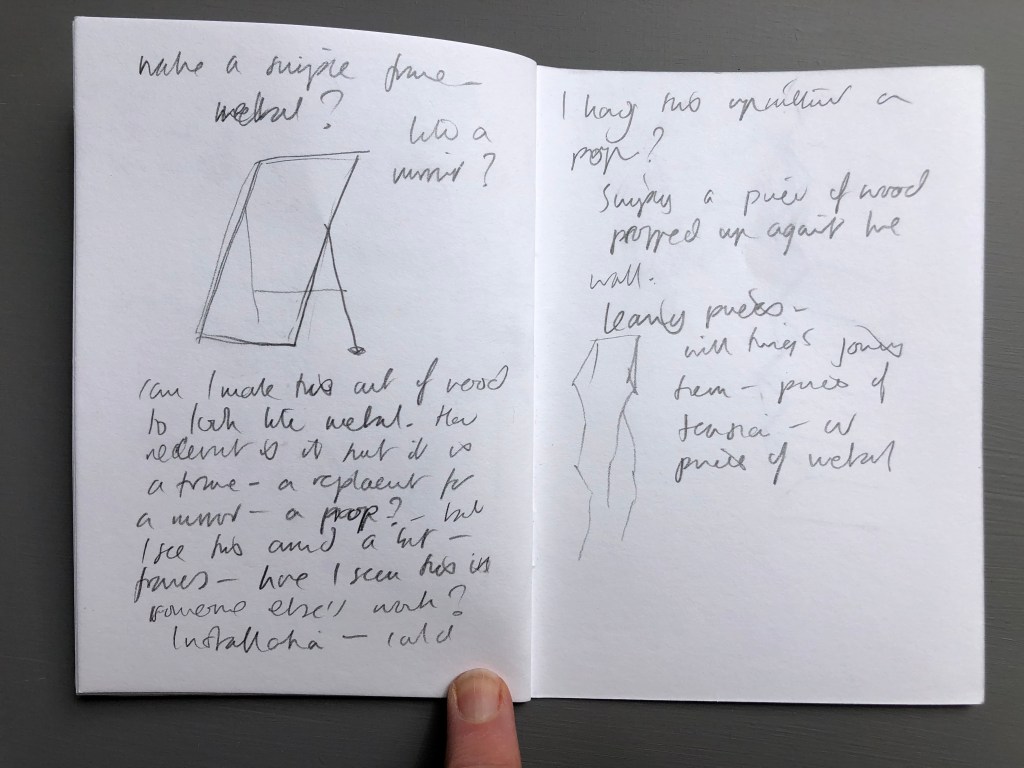 make a simple frame –
metal?
like a
mirror?
Can I make this out of wood
to look like metal. How
relevant is it that it is
a frame – a replacement for
a mirror – a prop? – but
I see this around a lot –
frames – have I seen this in
someone else's work?
Installation – could
I hang this up a prop?
Simply a piece of wood
propped up against the
wall.
leaning pieces –
with things joining
them – pieces of
or
pieces of metal